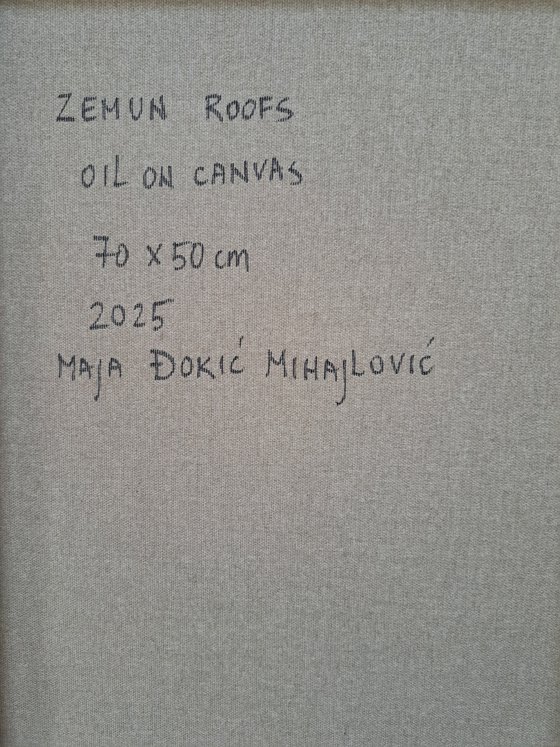 ZEMUN ROOFS
OIL ON CANVAS
70 x 50 cm
2025
MAJA ĐOKIĆ MIHAJLOVIĆ